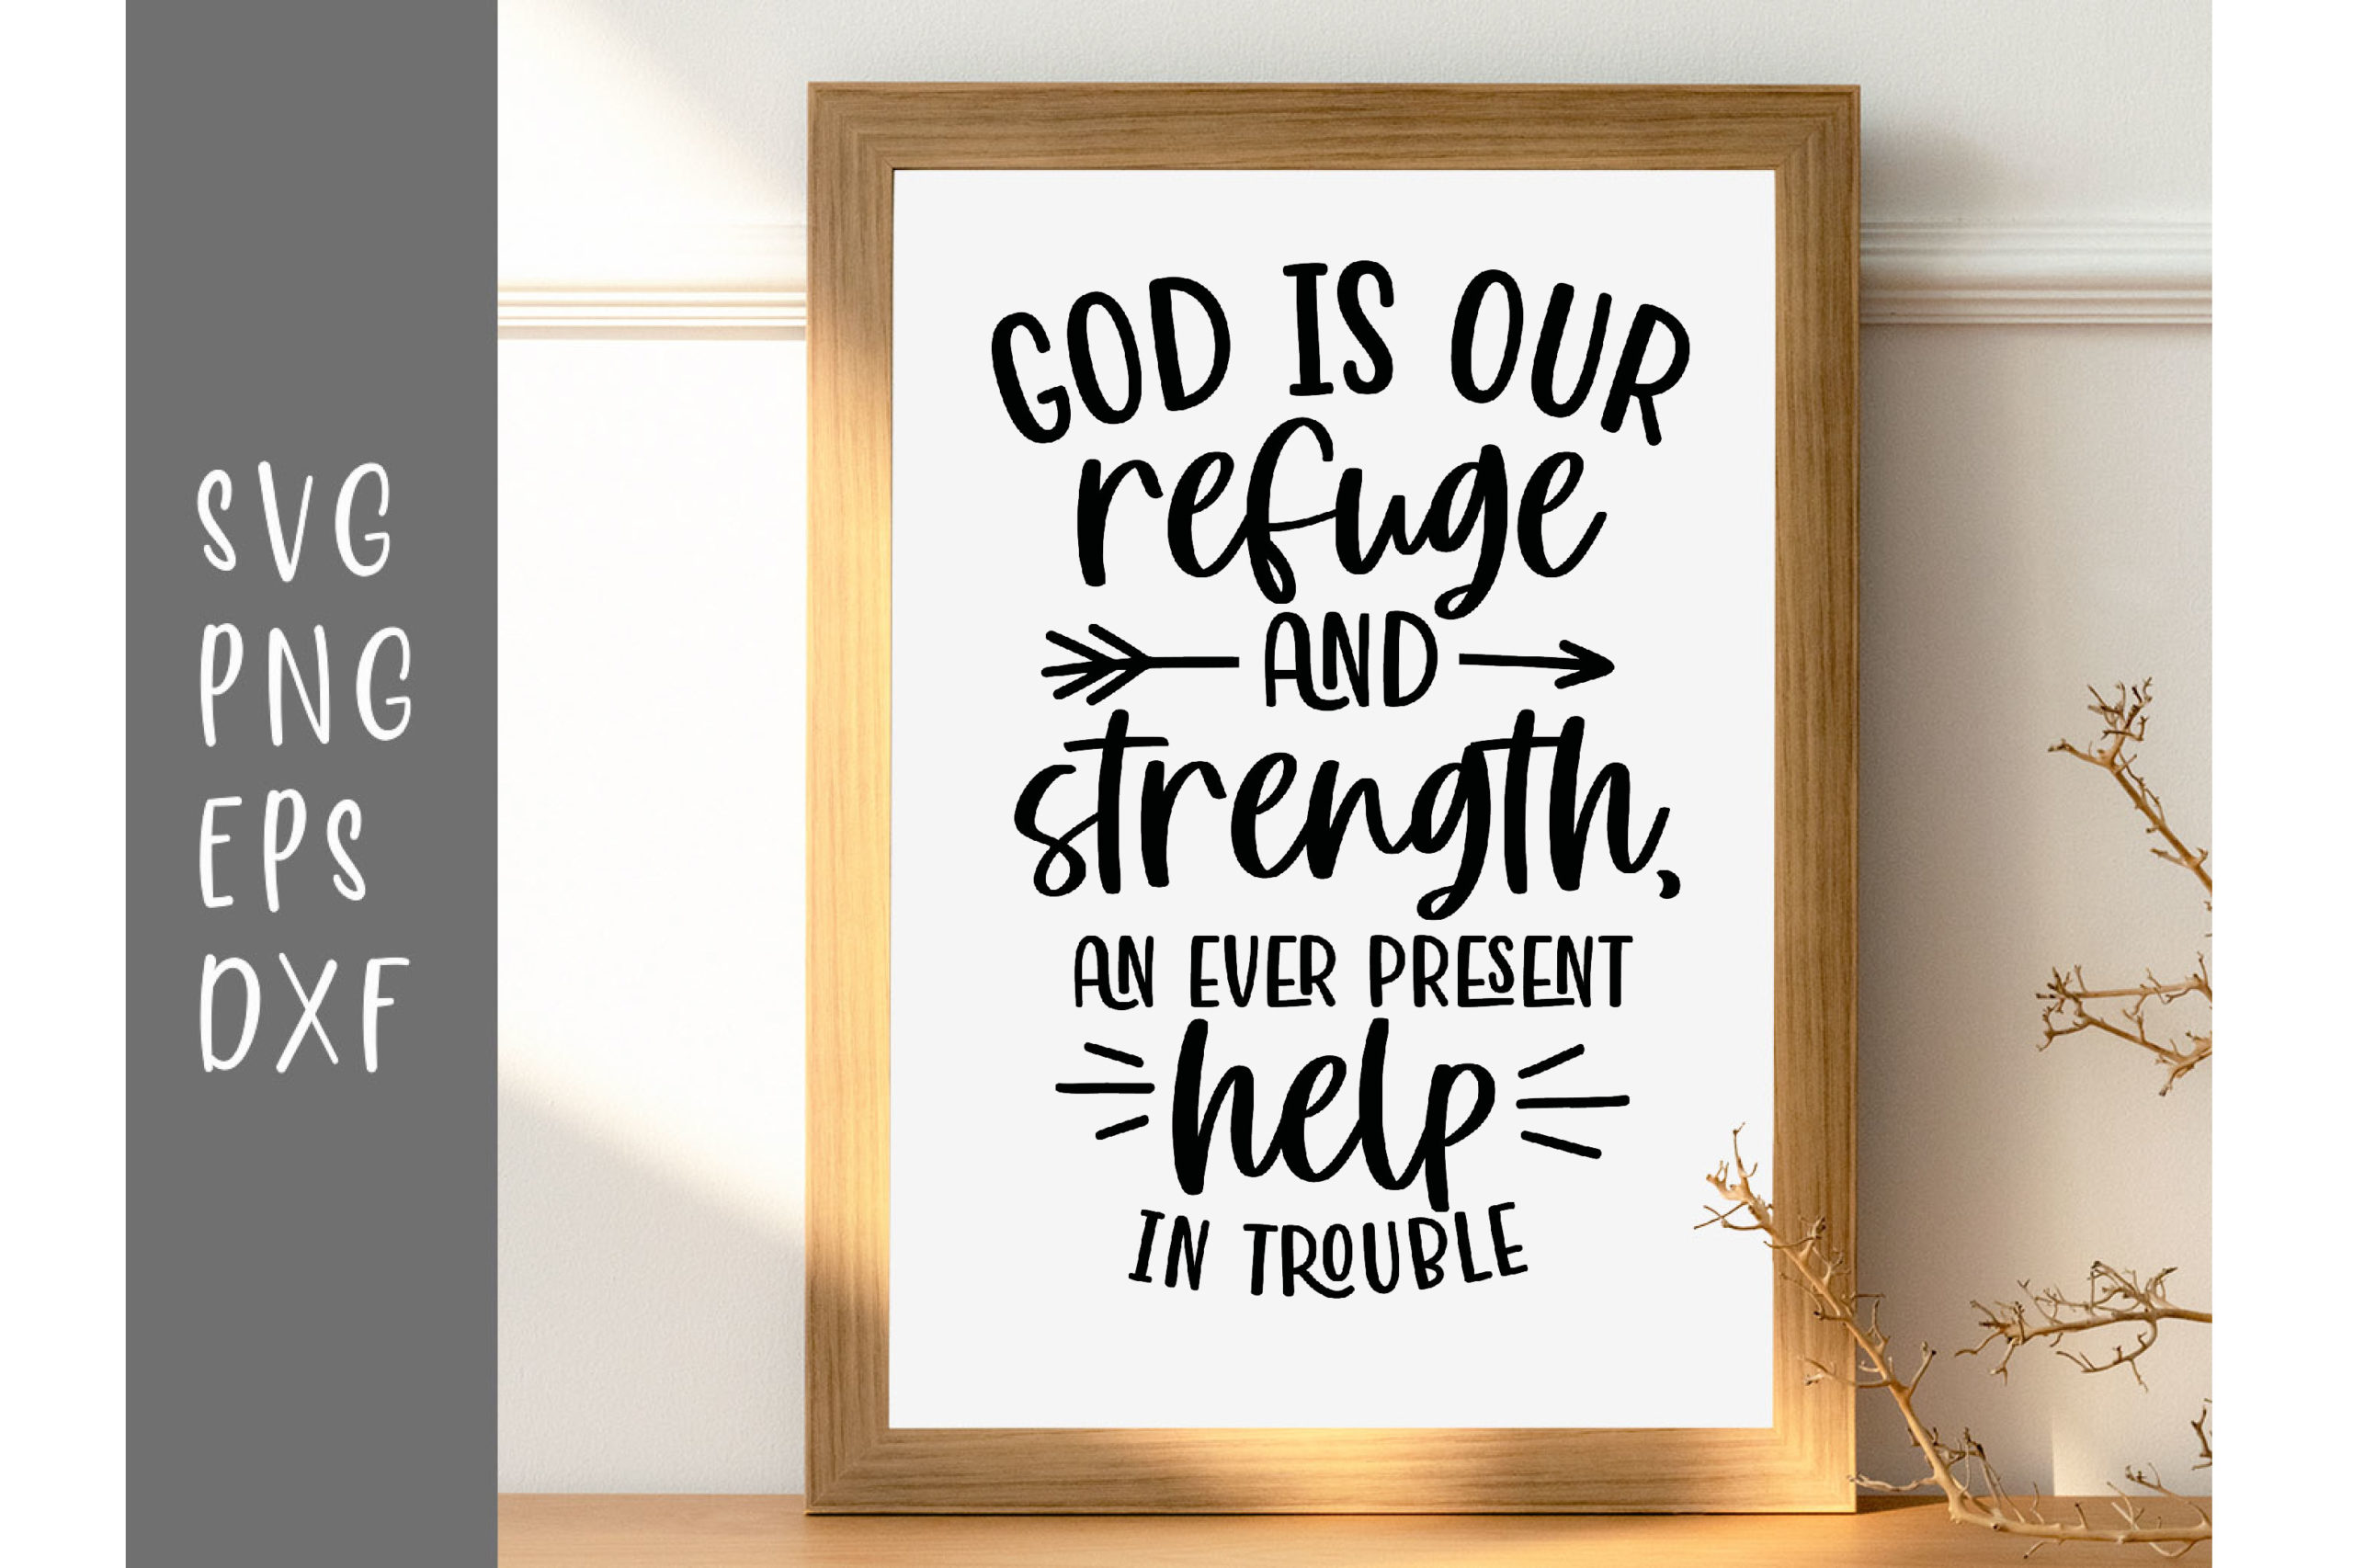 SVG
PNG
EPS
DXF
GOD IS OUR
refuge
AND
strength,
AN EVER PRESENT
help
IN TROUBLE